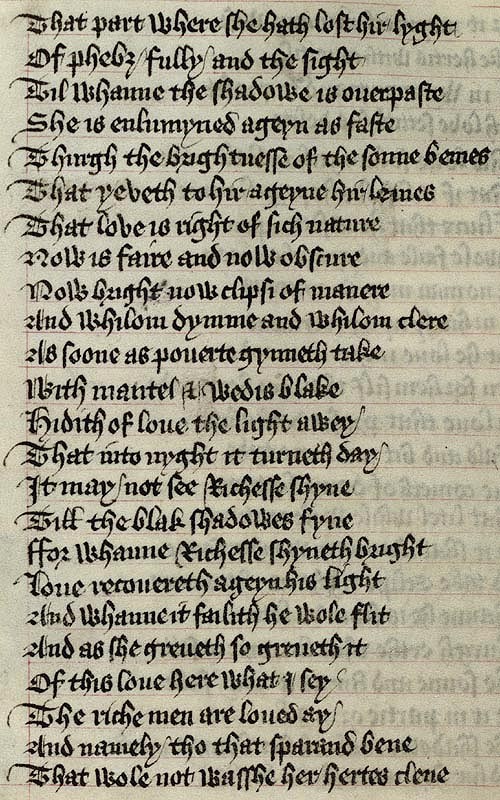 That part where she hath lost hir lyght
Of phebꝫ / fully / and the sight
Til whanne the shadowe is ouerpaste
She is enlumyned ageyn as faste
Thurgh the brightnesse of the sonne bemes
That yeveth to hir ageyne hir lemes
That love is right of sich nature
Now is faire and now obscure
Now bright now clipsi of manere
And whilom dymme and whilom clere
As soone as pouerte gynneth take
With mantel & wedis blake
Hidith of loue the light awey /
That into nyght it turneth day /
It may / not see Richesse shyne
Till the blak shadowes fyne
ffor whanne Richesse shyneth bright
Loue recouereth ageyn his light
And whanne it failith he wole flit
And as she greueth so greueth it
Of this loue here what I sey /
The riche men are loued ay /
And namely / tho that sparand bene
That wole not wasshe her hertes clene